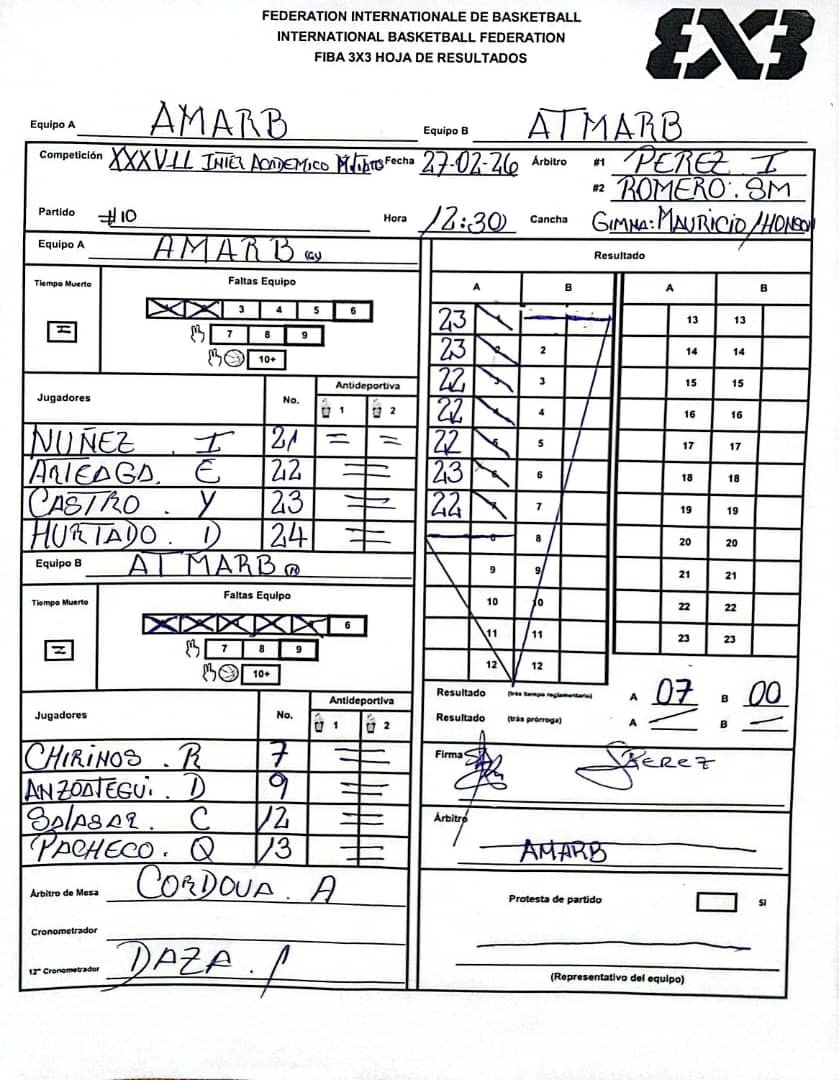 FEDERATION INTERNATIONALE DE BASKETBALL
INTERNATIONAL BASKETBALL FEDERATION
FIBA 3X3 HOJA DE RESULTADOS
3X3
Equipo A AMARB
Equipo B ATMARB
Competición XXXVII INTER ACADEMICO Fecha 27-02-26 Árbitro #1 PEREZ I
#2 ROMERO. SM
Partido #10 Hora 12:30 Cancha GIMNA: MAURICIO JHONSON
Equipo A AMARB
Tiempo Muerto Faltas Equipo
3 4 5 6
7 8 9
10+
Jugadores No. Antideportiva
1 2
NUÑEZ . I 21 = =
ARIEAGA. E 22 =
CASTRO . Y 23 =
HURTADO . D 24 =
Equipo B AT MARB
Tiempo Muerto Faltas Equipo
6
7 8 9
10+
Jugadores No. Antideportiva
1 2
CHIRINOS . R 7 =
ANZOATEGUI. D 9 =
SALASAR. C 12 =
PACHECO. Q 13 =
Árbitro de Mesa CORDOVA. A
Cronometrador
12" Cronometrador DAZA.
Resultado
A B A B
23 1 13 13
23 2 2 14 14
22 3 3 15 15
22 4 4 16 16
22 5 5 17 17
23 6 6 18 18
22 7 7 19 19
8 8 20 20
9 9 21 21
10 10 22 22
11 11 23 23
12 12
Resultado (trás tiempo reglamentario) A 07 B 00
Resultado (trás prórroga) A B
Firma
Árbitro
AMARB
Protesta de partido SI
(Representativo del equipo)